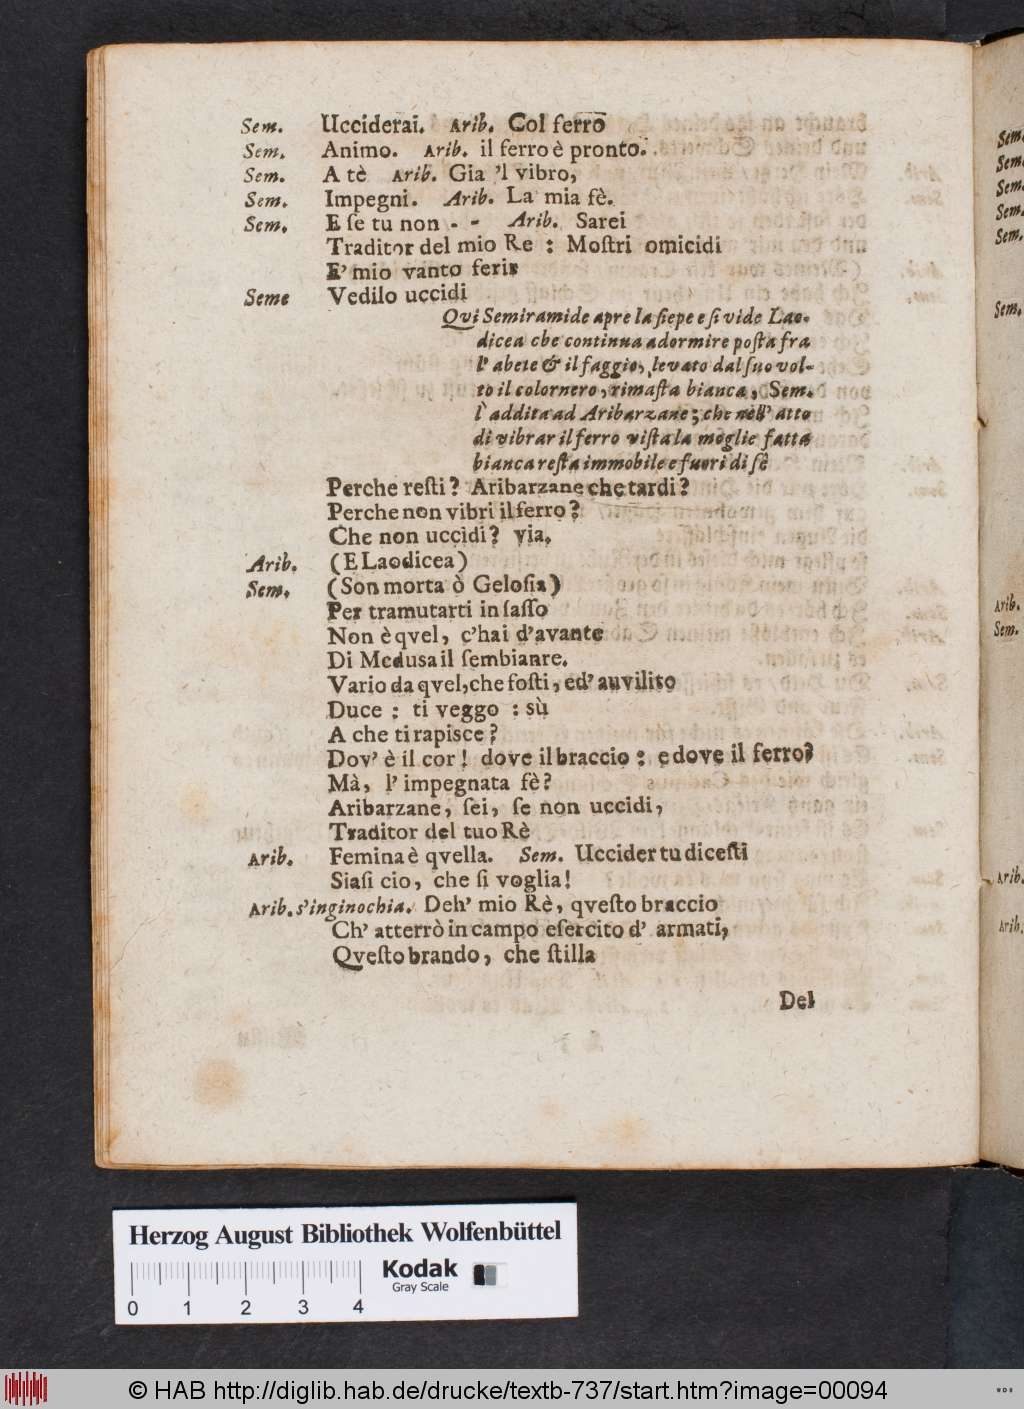 Sem. Ucciderai. Arib. Col ferro
Sem. Animo. Arib. il ferro è pronto.
Sem. A tè Arib. Gia 'l vibro,
Sem. Impegni. Arib. La mia fè.
Sem. E ſe tu non - - Arib. Sarei
Traditor del mio Re : Moſtri omicidi
E' mio vanto ferir
Seme Vedilo uccidi
Qui Semiramide apre la ſiepe e ſi vide Lao-
dicea che continua a dormire poſta fra
l' abete & il faggio, levato dal ſuo vol-
to il color nero, rimaſta bianca, Sem.
l' addita ad Aribarzane; che nell' atto
di vibrar il ferro viſta la moglie fatta
bianca reſta immobile e fuori di ſè
Perche reſti? Aribarzane che tardi?
Perche non vibri il ferro?
Che non uccidi? via.
Arib. (E Laodicea)
Sem. (Son morta ò Geloſia)
Per tramutarti in ſaſſo
Non è qvel, c'hai d'avante
Di Medusa il ſembianre.
Vario da qvel, che foſti, ed' auvilito
Duce : ti veggo : sù
A che ti rapisce?
Dov' è il cor! dove il braccio : e dove il ferro?
Mà, l' impegnata fè?
Aribarzane, ſei, ſe non uccidi,
Traditor del tuo Rè
Arib. Femina è qvella. Sem. Uccider tu diceſti
Siaſi cio, che ſi voglia!
Arib. s'inginochia. Deh' mio Rè, qveſto braccio
Ch' atterrò in campo eſercito d' armati,
Qveſto brando, che ſtilla
Del
Sem.
Sem.
Sem.
Sem.
Sem.
Sem.
Arib.
Sem.
Arib.
Arib.
Herzog August Bibliothek Wolfenbüttel
Kodak
Gray Scale
0 1 2 3 4
© HAB http://diglib.hab.de/drucke/textb-737/start.htm?image=00094